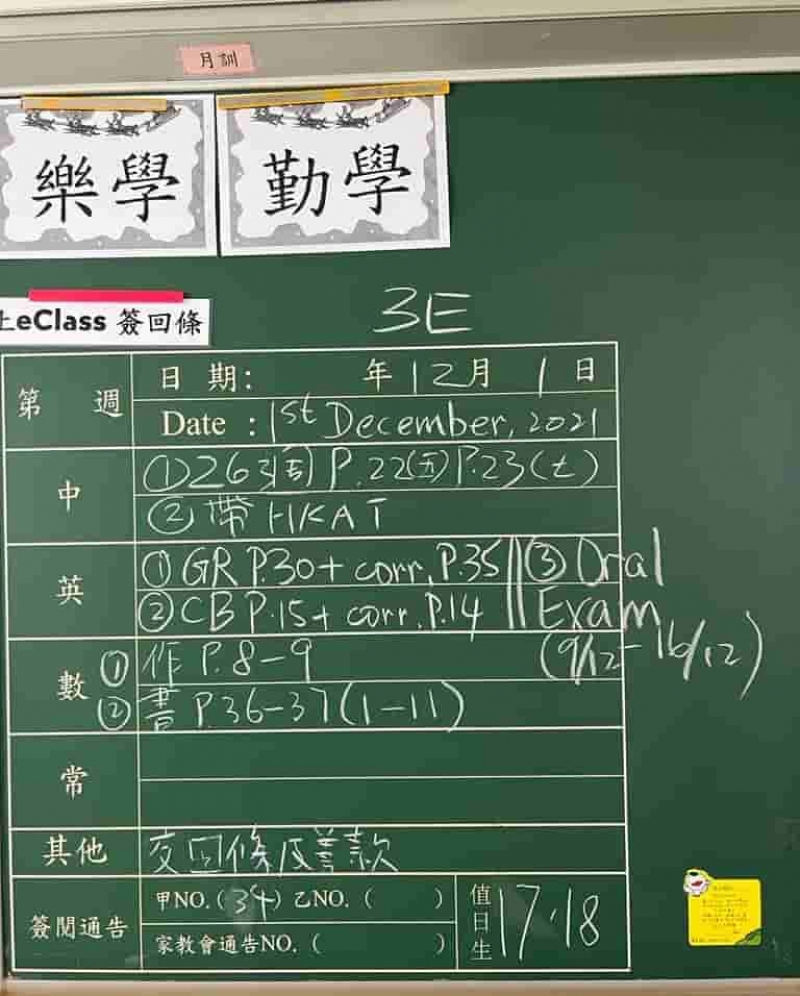 月訓
樂學 勤學
上eClass 簽回條
3E
第 週
日 期: 年12月 1日
Date : 1st December, 2021
中
① 263 P.22(五) P.23(七)
② 帶 HKAT
英
① GR P.30+ corr. P.35 ③ Oral
② CB P.15+ corr. P.14 Exam
(9/12-16/12)
數
① 作 P.8-9
② 書 P.36-37(1-11)
常
其他 交回條及善款
簽閱通告
甲NO.(34) 乙NO.( )
家教會通告NO.( )
值日生 17,18